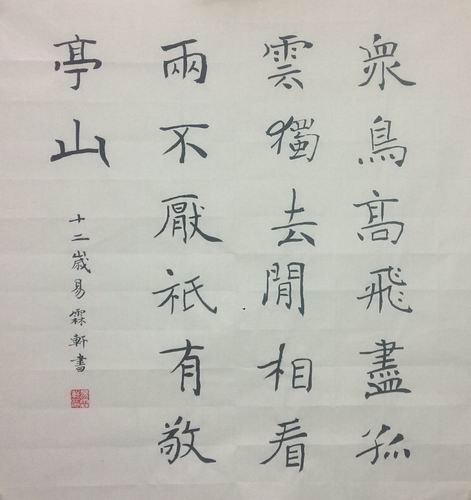 眾鳥高飛盡孤
雲獨去閒相看
兩不厭祇有敬
亭山
十二歲易霖軒書